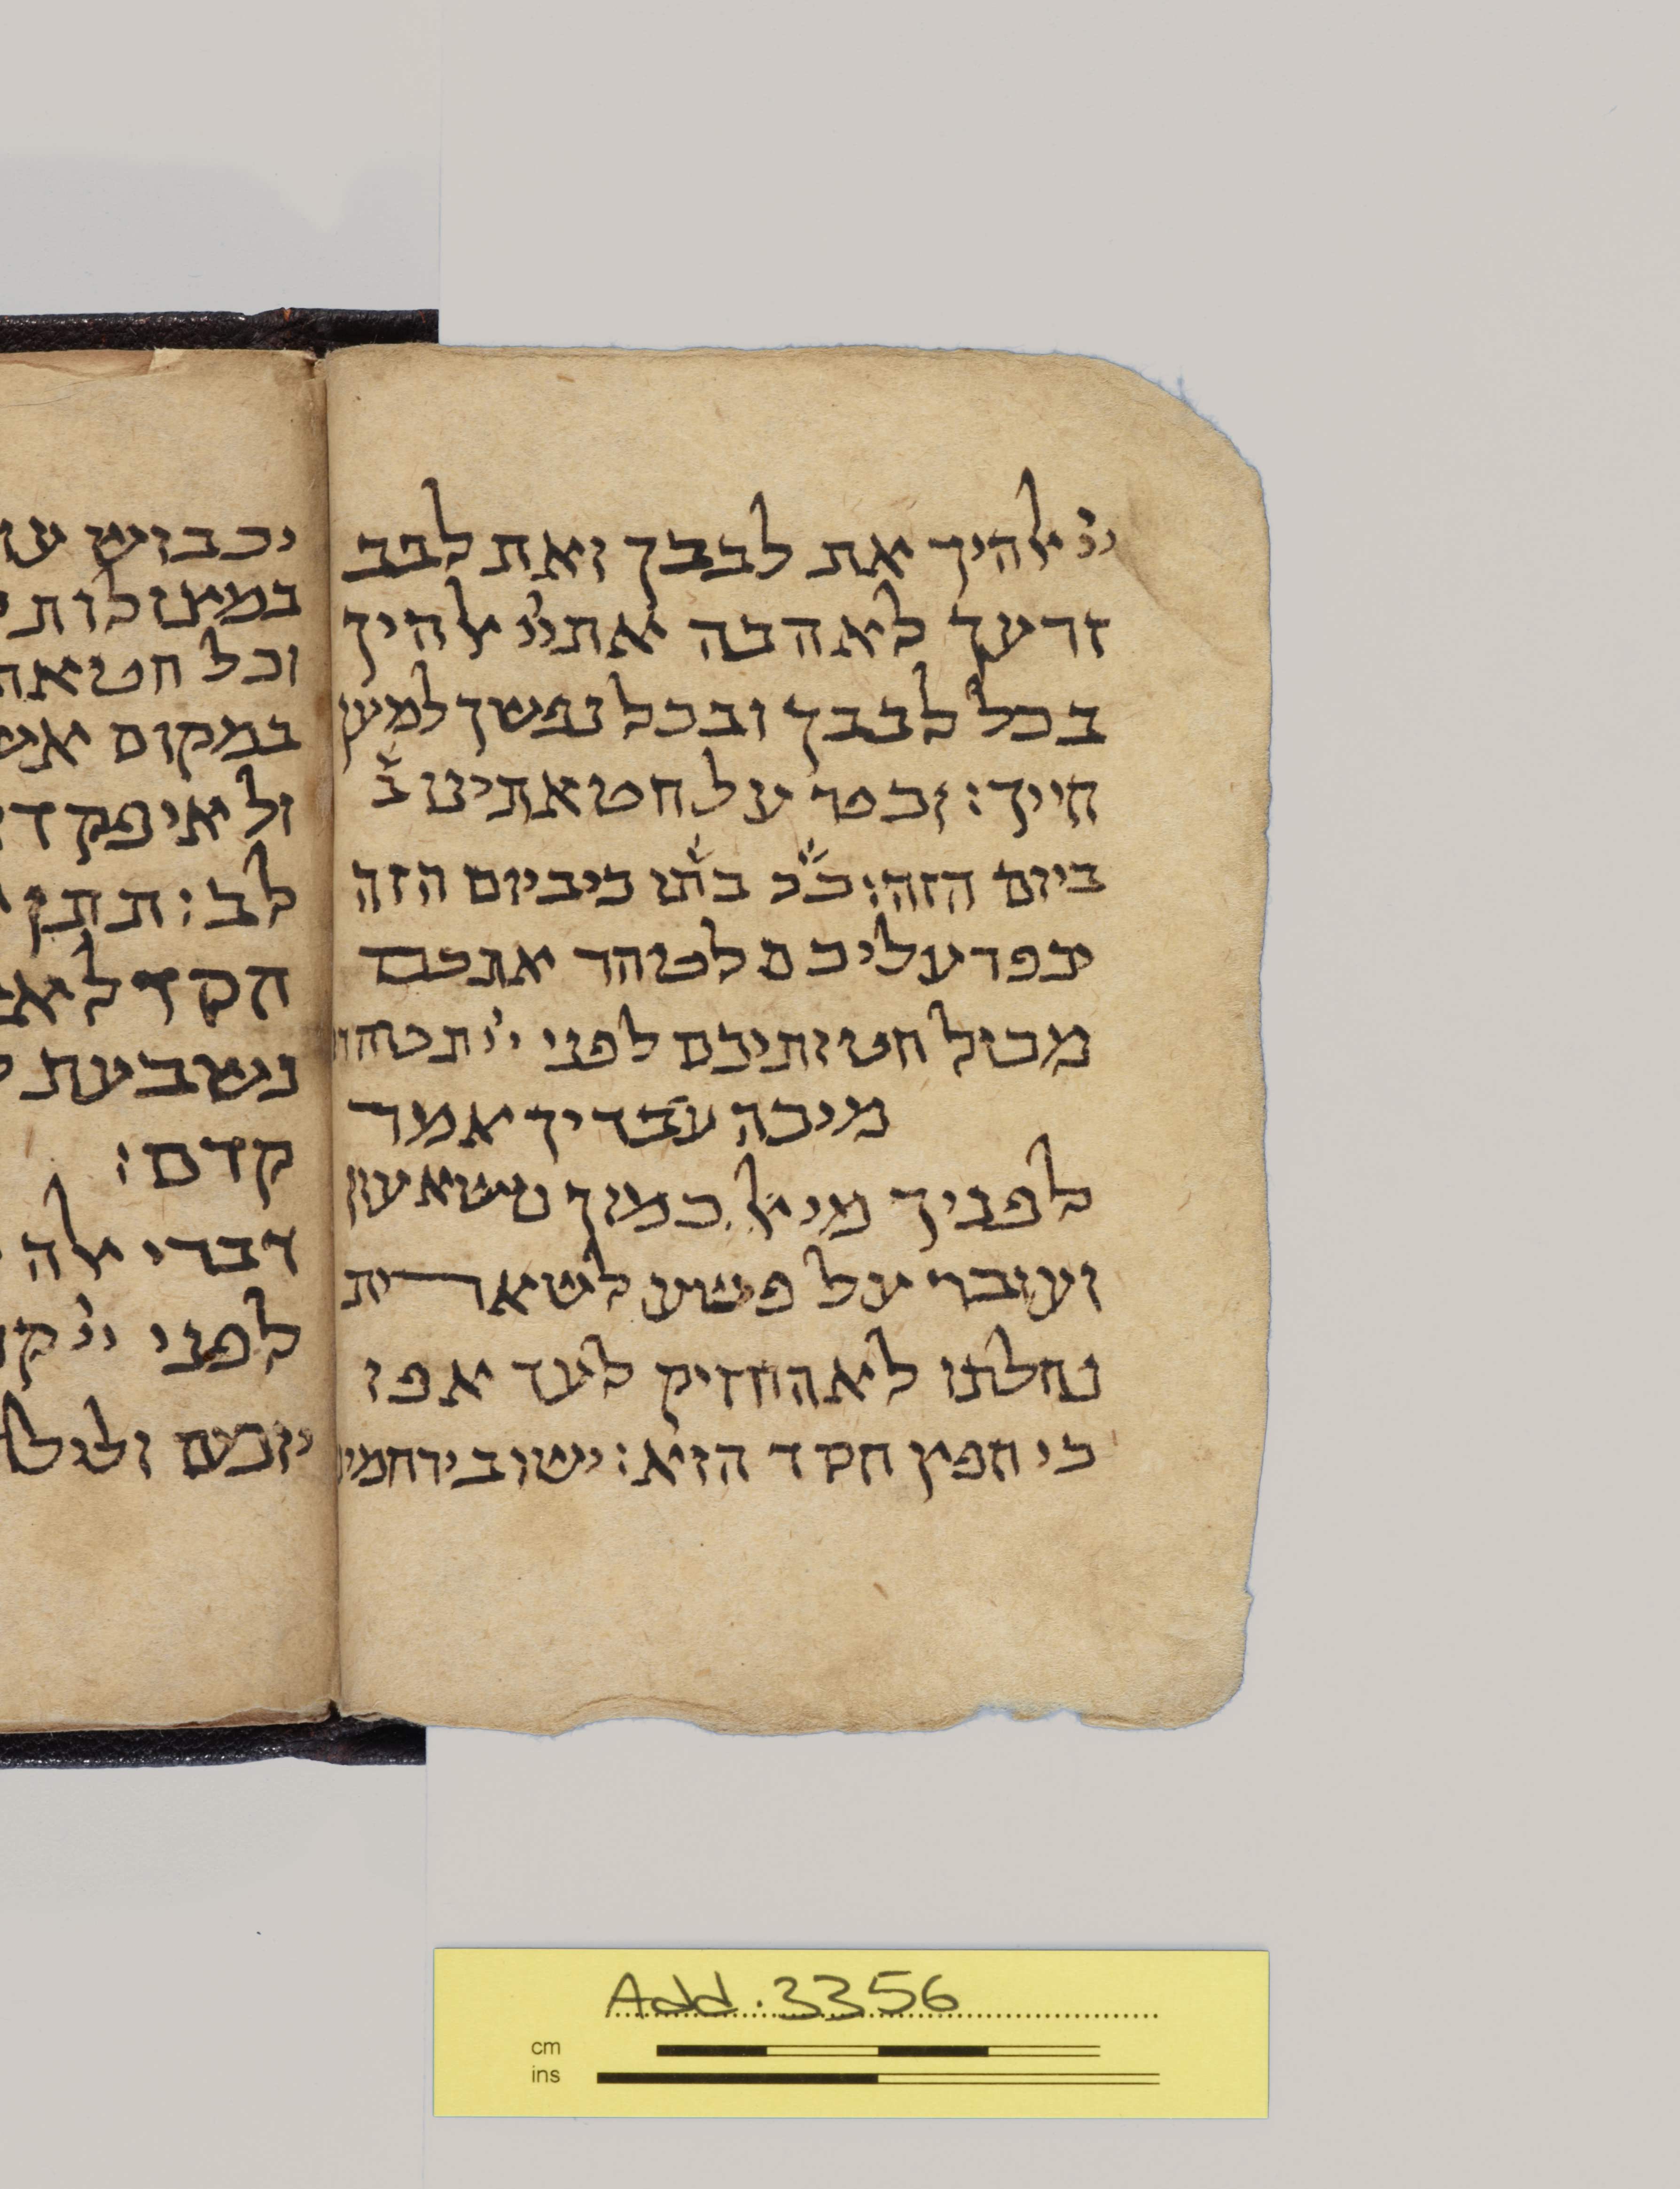 ייי אלהיך את לבבך ואת לבב
זרעך לאהבה את ייי אלהיך
בכל לבבך ובכל נפשך למען
חייך: וכפר על חטאתינו ב
ביום הזה: כ"כ בתו כי ביום הזה
יכפר עליכם לטהר אתכם
מכול חטותיכם לפני ייי תטהרו
מיכה עבדיך אמר
לפניך מי אל כמוך נושא עון
ועובר על פשע לשארית
נחלתו לא החזיק לעד אפו
כי חפץ חסד הוא: ישוב ירחמינו
יכבוש עו
במצולות
וכל חטאת
במקום אש
ולא יפקדו
לב: תתן
חסד לאב
נשבעת ל
קדם:
דברי אלה
לפני ייי ק
יומם ולילה
Add. 3356
cm
ins